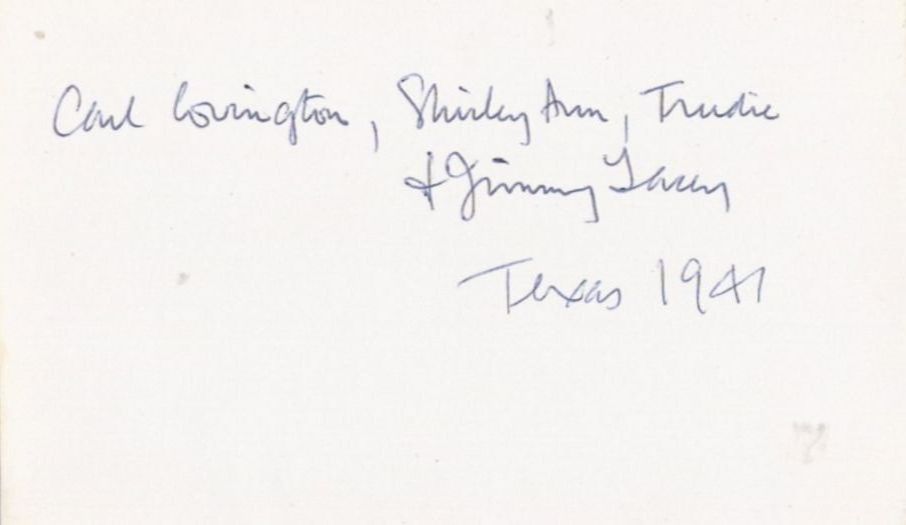 Carl Covington, Shirley Ann, Trudie
& Jimmy Lacey
Texas 1941